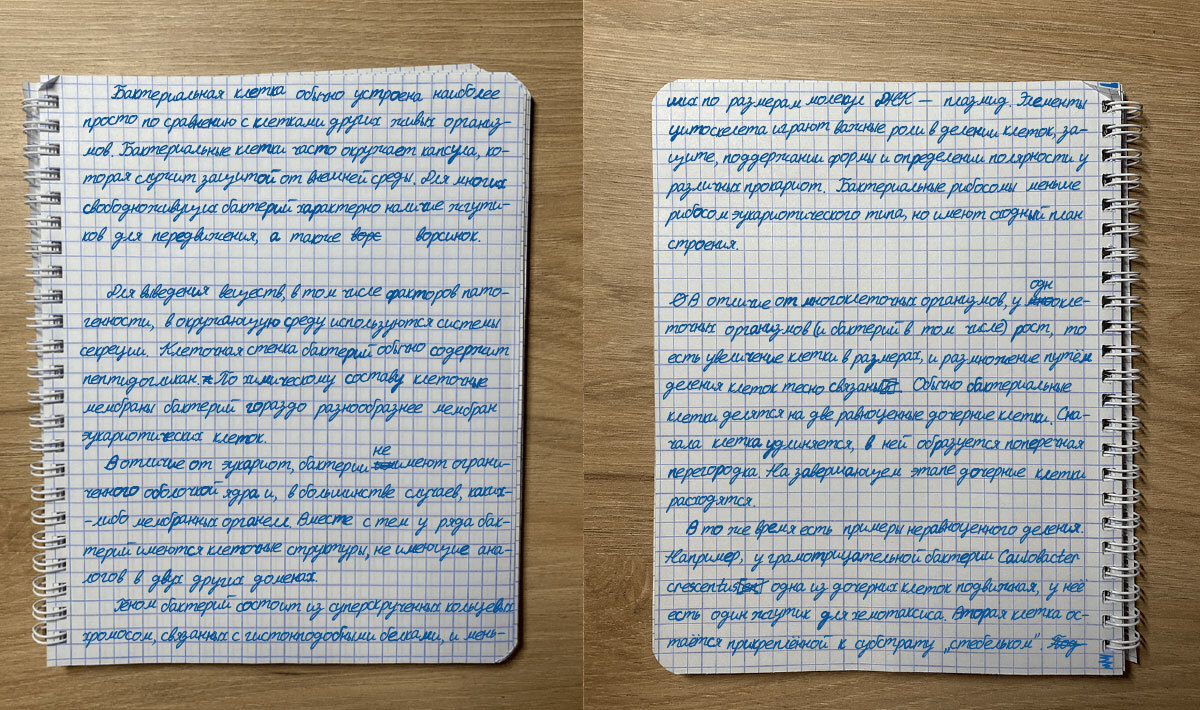 Бактериальная клетка обычно устроена наиболее
просто по сравнению с клетками других живых организ-
мов. Бактериальные клетки часто окружает капсула, ко-
торая служит защитой от внешней среды. Для многих
свободноживущих бактерий характерно наличие жгути-
ков для передвижения, а также ворс ворсинок.
Для выведения веществ, в том числе факторов пато-
генности, в окружающую среду используются системы
секреции. Клеточная стенка бактерий обычно содержит
пептидогликан. По химическому составу клеточные
мембраны бактерий гораздо разнообразнее мембран
эукариотических клеток.
В отличие от эукариот, бактерии не имеют ограни-
ченного оболочкой ядра и, в большинстве случаев, каких-
-либо мембранных органелл. Вместе с тем у ряда бак-
терий имеются клеточные структуры, не имеющие ана-
логов в двух других доменах.
Геном бактерий состоит из суперскрученных кольцевых
хромосом, связанных с гистонподобными белками, и мень-
ших по размерам молекул ДНК — плазмид. Элементы
цитоскелета играют важные роли в делении клеток, за-
щите, поддержании формы и определении полярности у
различных прокариот. Бактериальные рибосомы меньше
рибосом эукариотического типа, но имеют сходный план
строения.
В отличие от многоклеточных организмов, у однокле-
точных организмов (и бактерий в том числе) рост, то
есть увеличение клетки в размерах, и размножение путём
деления клеток тесно связаны. Обычно бактериальные
клетки делятся на две равноценные дочерние клетки. Сна-
чала клетка удлиняется, в ней образуется поперечная
перегородка. На завершающем этапе дочерние клетки
расходятся.
В то же время есть примеры неравноценного деления.
Например, у грамотрицательной бактерии Caulobacter
crescentus одна из дочерних клеток подвижная, у неё
есть один жгутик для хемотаксиса. Вторая клетка ос-
таётся прикреплённой к субстрату „стебельком". Под